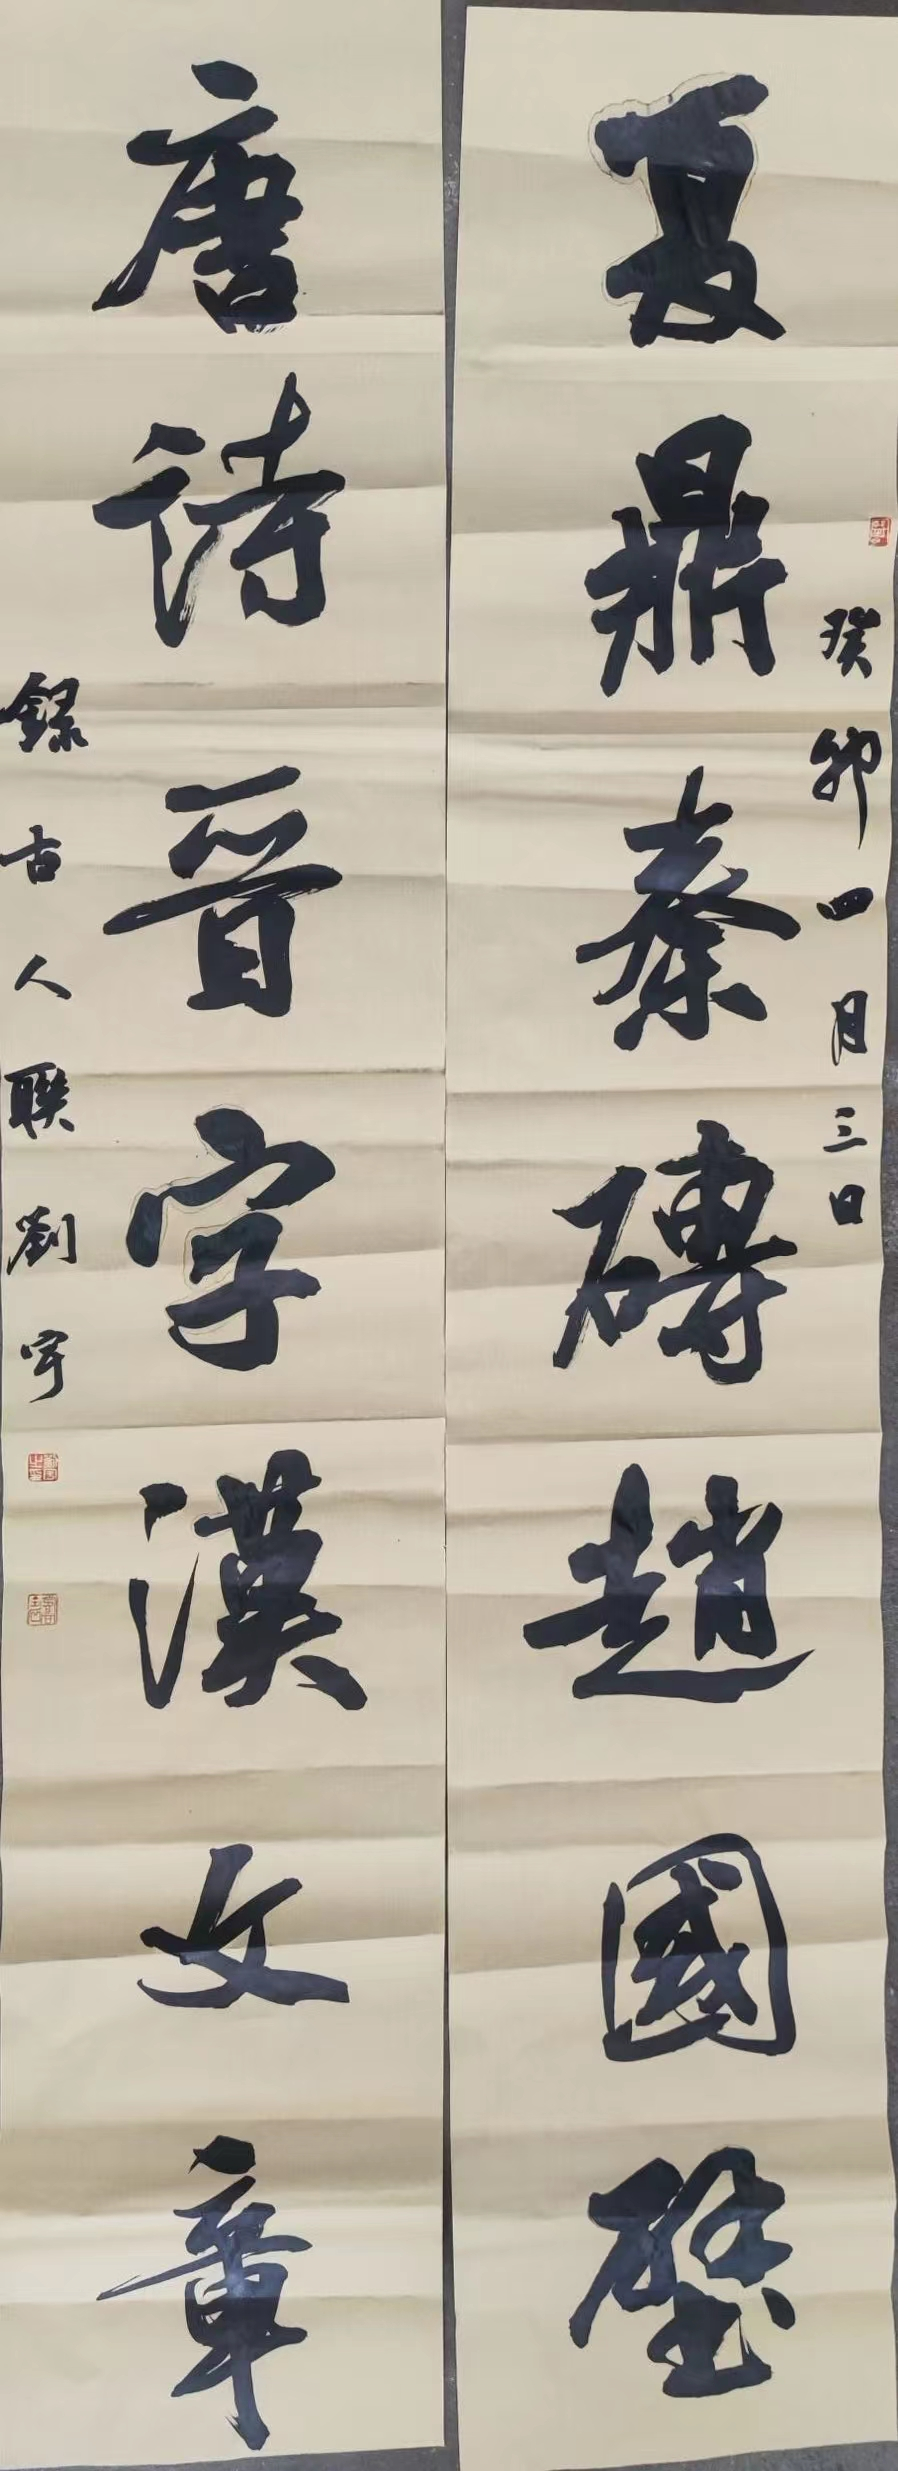 癸卯四月三日
夏鼎秦磚趙國璧
唐詩晉字漢文章
錄古人聯劉宇